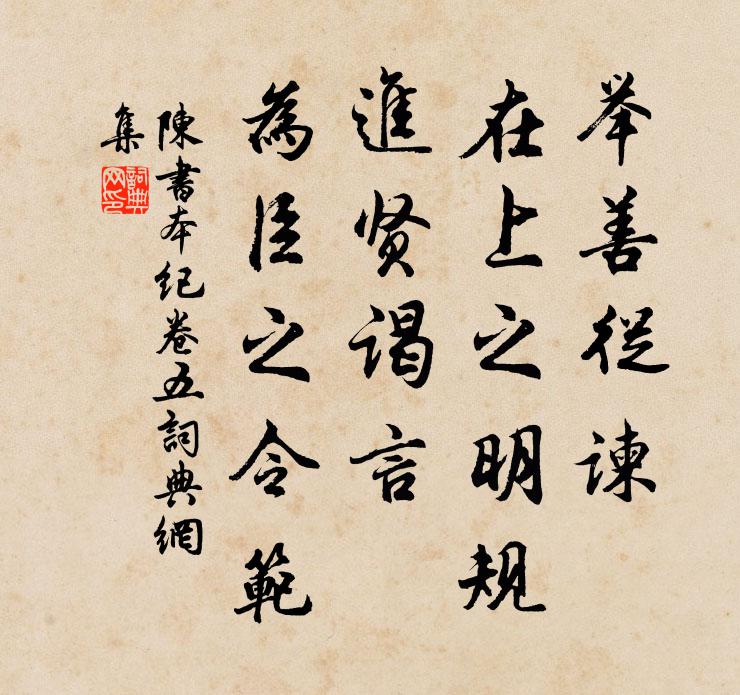 举善從諫
在上之明規
進贤謁言
為臣之令範
陳書本紀卷五詞典網
集
詞典
网印